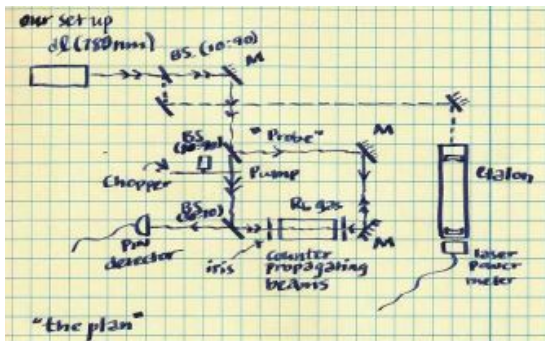 our set up
dl (780nm)
BS. (10-90)
M
BS
"Probe"
M
Chopper
Pump
Etalon
BS
Rb gas
PIN
detector
iris
counter
propagating
beams
M
laser
power
meter
"the plan"